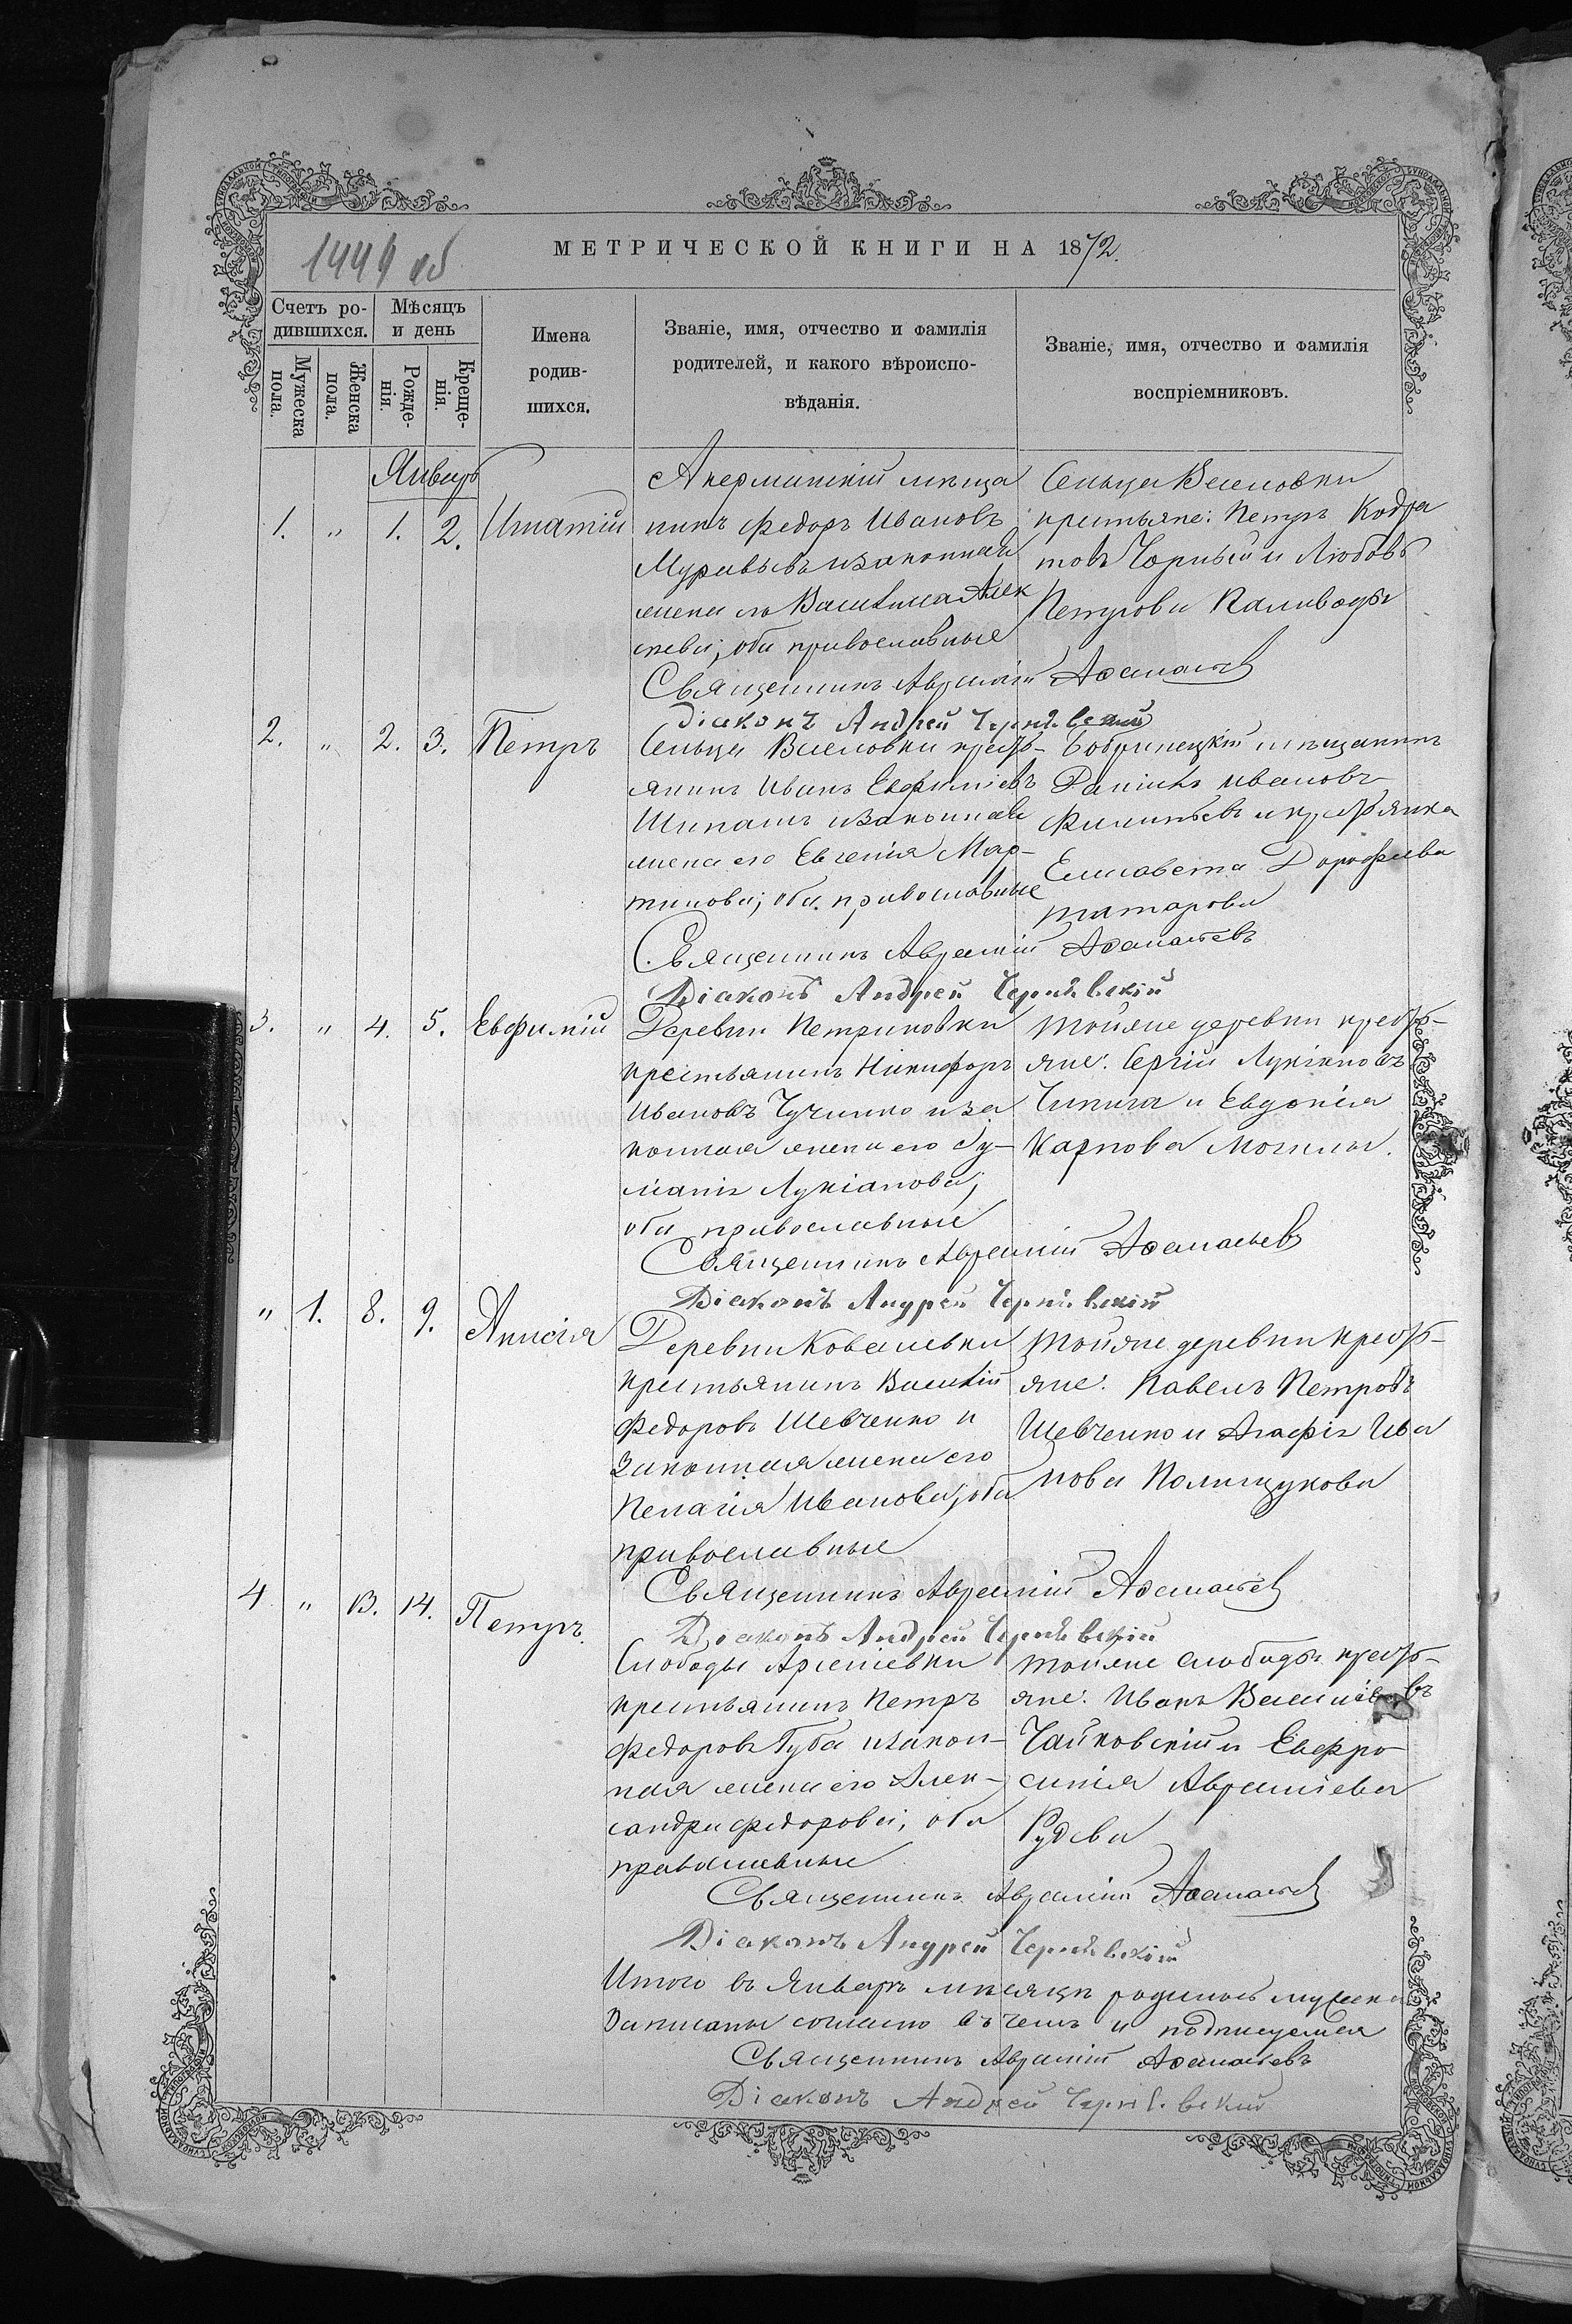 1449 об
МЕТРИЧЕСКОЙ КНИГИ НА 1872.
Счетъ ро-
дившихся.
Мѣсяцъ
и день
Мужеска
пола.
Женска
пола.
Рожде-
нія.
Креще-
нія.
Имена
родив-
шихся.
Званіе, имя, отчество и фамилія
родителей, и какого вѣроиспо-
вѣданія.
Званіе, имя, отчество и фамилія
воспріемниковъ.
Январь
1. " 1. 2. Игнатій
Акерманскій мѣща
нинъ Федоръ Ивановъ
и законная
жена его Василиса Алек
сѣева; оба православные
Сельца Веселовки
крестьяне: Петръ Кодра
товъ Чорный и Любовь
Петрова Каливода
Священникъ Аврамій Аѳанасьевъ
Діаконъ Андрей Чернѣвскій
2. " 2. 3. Петръ
Сельца Веселовки кресть-
янинъ Иванъ Евфиміевъ
и законная
жена его Евгенія Мар-
тинова; оба православные
Бобринецкій мѣщанинъ
Даніилъ Ивановъ
Филипьевъ и крестьянка
Елисавета Дорофеева
Татарова
Священникъ Аврамій Аѳанасьевъ
Діаконъ Андрей Чернѣвскій
3. " 4. 5. Евфимій
Деревни Петриковки
крестьянинъ Никифоръ
Ивановъ и за
конная жена его Іу-
ліанія Лукіанова;
оба православные
Тойже деревни кресть-
яне: Сергій Лукіановъ
Чипига и Евдокія
Карпова Могила.
Священникъ Аврамій Аѳанасьевъ
Діаконъ Андрей Чернѣвскій
" 1. 8. 9. Анисія
Деревни Ковалевки
крестьянинъ Василій
Федоровъ Шевченко и
законная жена его
Пелагія Иванова; оба
православные
Тойже деревни кресть-
яне: Павелъ Петровъ
Шевченко и Агафія Ива
нова Полищукова
Священникъ Аврамій Аѳанасьевъ
Діаконъ Андрей Чернѣвскій
4 " 13. 14. Петръ.
Слободы Арсеніевки
крестьянинъ Петръ
Федоровъ Губа и закон-
ная жена его Алек-
сандра Федорова; оба
православные
Тойже слободы кресть-
яне: Иванъ Василіевъ
Чайковскій и Евфро-
синія Авраміева
Рудева
Священникъ Аврамій Аѳанасьевъ
Діаконъ Андрей Чернѣвскій
Итого въ Январѣ мѣсяцѣ родилось мужеска
Записаны согласно въ чемъ и подписуемся
Священникъ Аврамій Аѳанасьевъ
Діаконъ Андрей Чернѣвскій